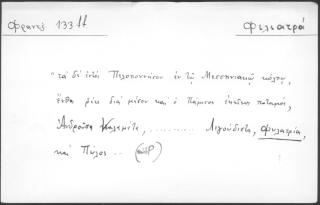 Φραντζ. 133 Φιλιατρά
"τὰ δὲ ἐντὸς Πελοποννήσου ἐν τῷ Μεσσηνιακῷ κόλπῳ,
ἔνθα ῥέει διὰ μέσου καὶ ὁ Πάμισος ἐκεῖνος ποταμός,
Ἀνδροῦσα Καλαμάτα, .......... Λιγούδιστα, Φιλατρία,
καὶ Πύλος ..